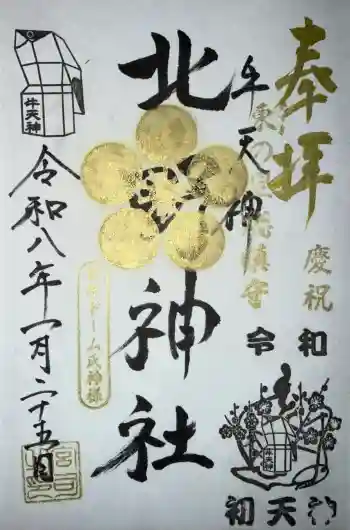 奉拝
慶祝
令和
初天神
牛天神
北神社
東京ドーム氏神様
牛天神
令和八年一月二十五日
牛天神